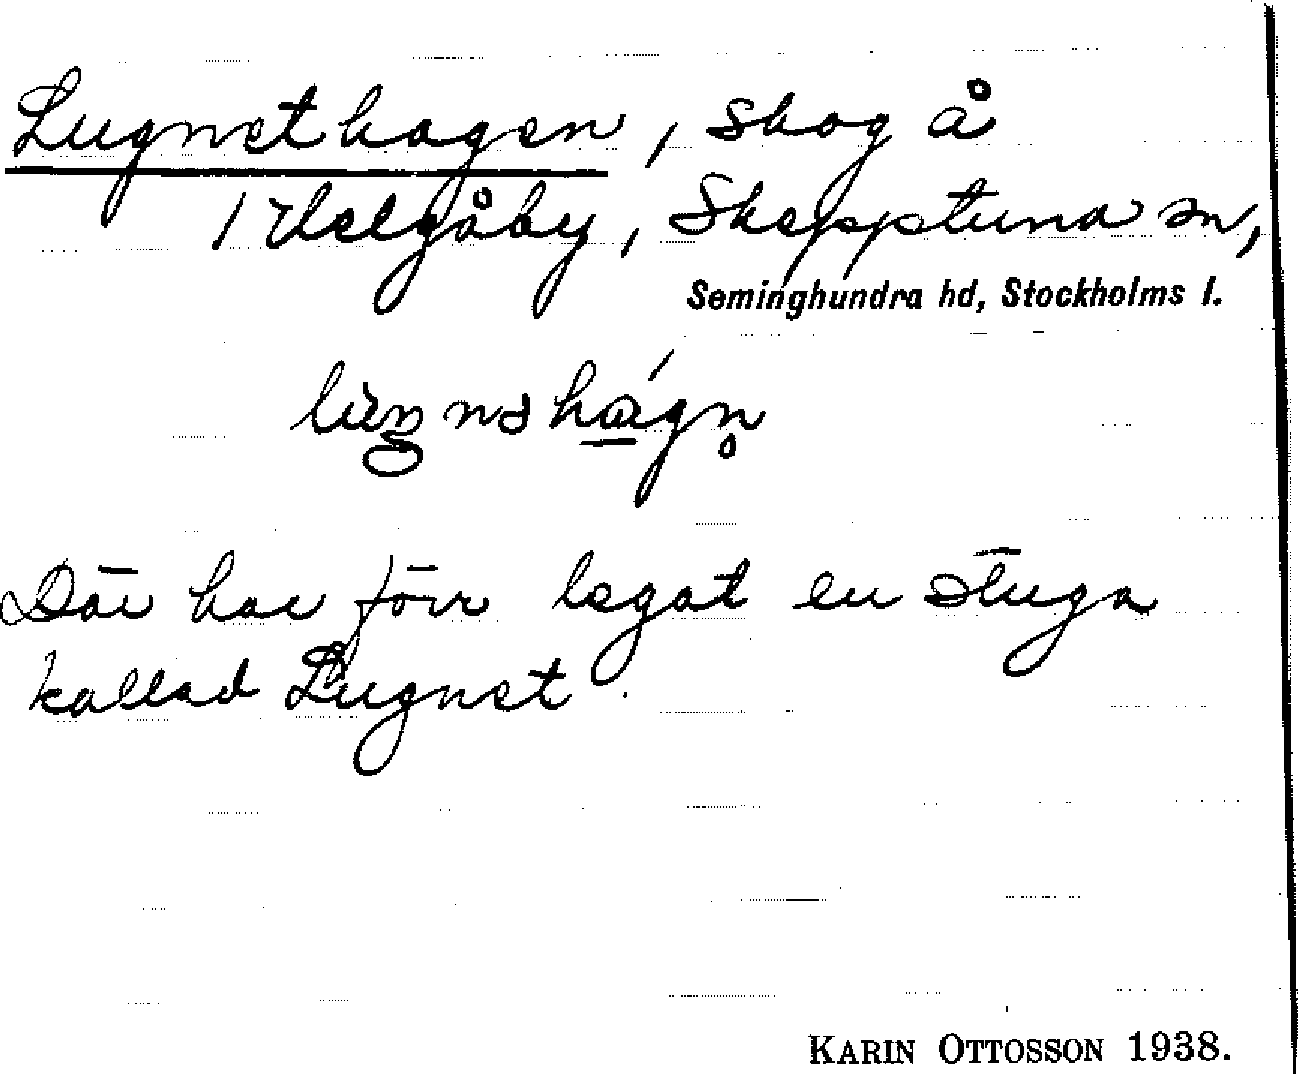 Lugnethagen, skog å
1 Helgåby, Skepptuna sn,
Seminghundra hd, Stockholms l.
Där har förr legat en stuga
kallad Lugnet.
KARIN OTTOSSON 1938.